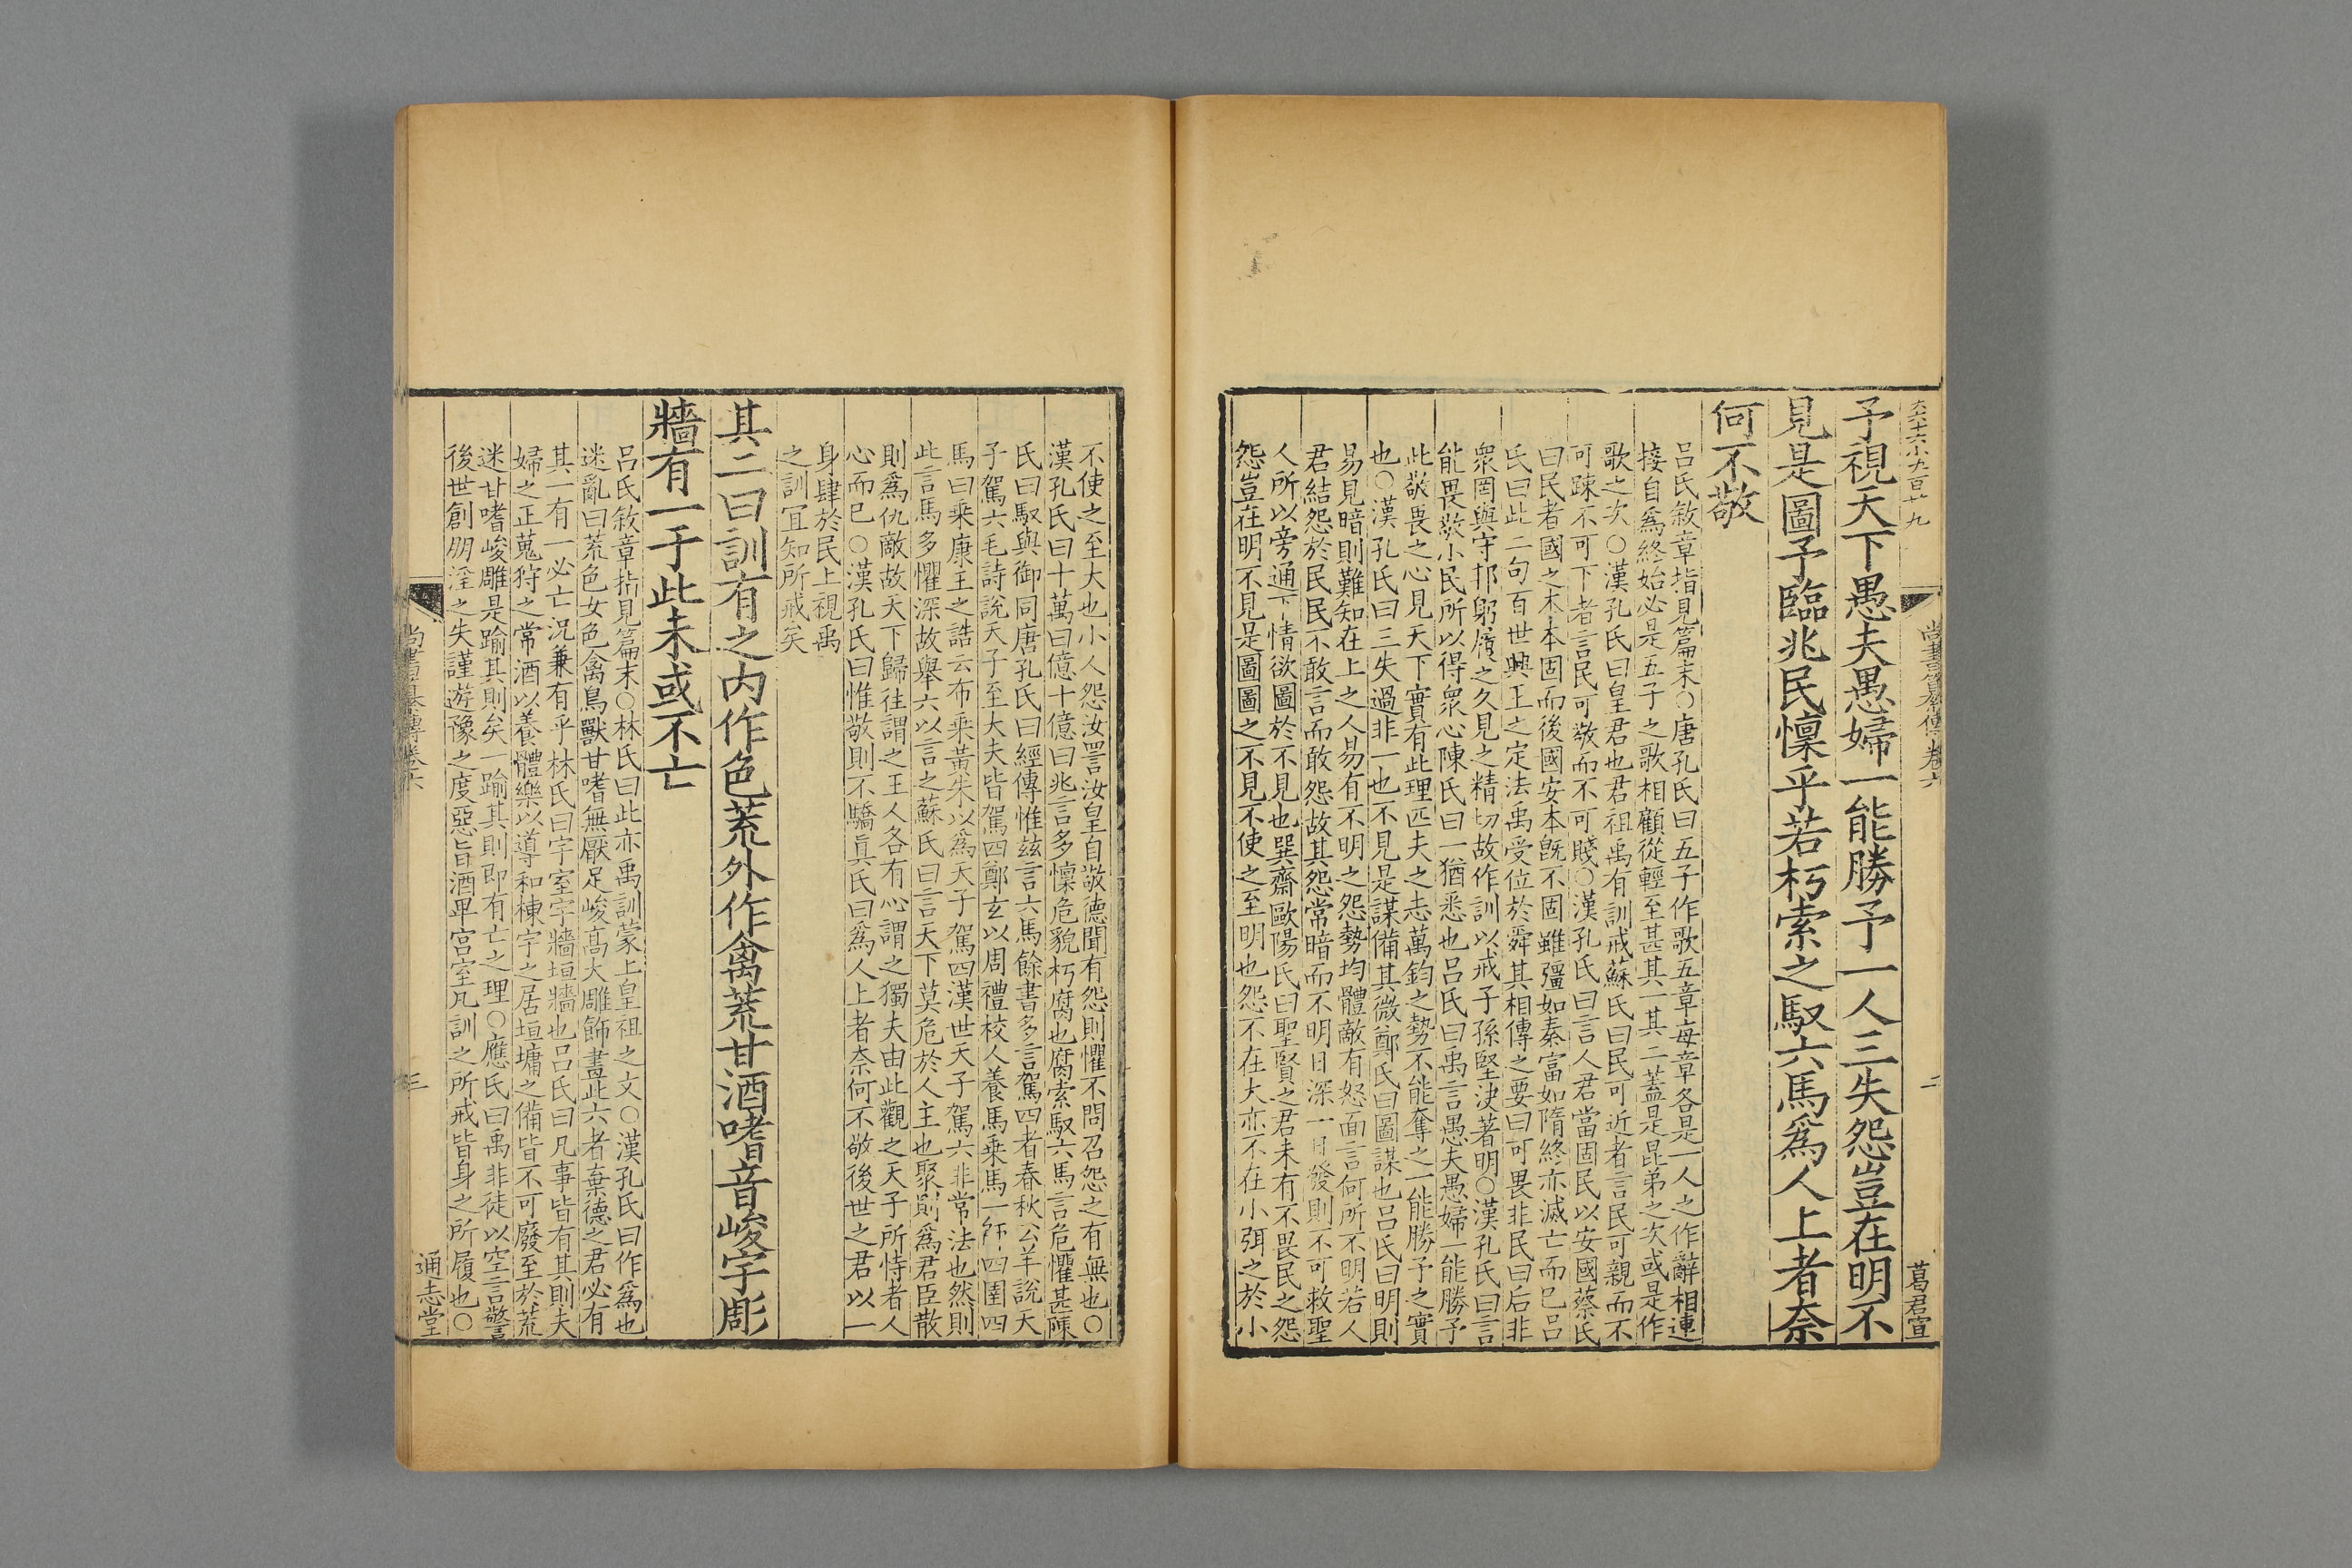 尚書纂傳卷六
二
葛君宣
予視天下愚夫愚婦一能勝予一人三失怨豈在明不
見是圖予臨兆民懍乎若朽索之馭六馬爲人上者奈
何不敬
呂氏敘章指見篇末○唐孔氏曰五子作歌五章每章各是一人之作辭相連
接自爲終始必是五子之歌相顧從輕至甚其一其二蓋是昆弟之次或是作
歌之次○漢孔氏曰皇君也君祖禹有訓戒蘇氏曰民可近者言民可親而不
可踈不可下者言民可敬而不可賤○漢孔氏曰言人君當固民以安國蔡氏
曰民者國之本本固而後國安本旣不固雖彊如秦富如隋終亦滅亡而已呂
氏曰此二句百世興王之定法禹受位於舜其相傳之要曰可畏非民曰后非
衆罔與守邦躬履之久見之精切故作訓以戒子孫堅決著明○漢孔氏曰言
能畏敬小民所以得衆心陳氏曰一猶悉也呂氏曰禹言愚夫愚婦一能勝予
此敬畏之心見天下實有此理匹夫之志萬鈞之勢不能奪之一能勝予之實
也○漢孔氏曰三失過非一也不見是謀備其微鄭氏曰圖謀也呂氏曰明則
易見暗則難知在上之人易有不明之怨勢均體敵有怒面言何所不明若人
君結怨於民民不敢言而敢怨故其怨常暗而不明日深一日發則不可救聖
人所以旁通下情欲圖於不見也巽齋歐陽氏曰聖賢之君未有不畏民之怨
怨豈在明不見是圖圖之不見不使之至明也怨不在大亦不在小弭之於小
不使之至大也小人怨汝詈汝皇自敬德聞有怨則懼不問召怨之有無也○
漢孔氏曰十萬曰億十億曰兆言多懍危貌朽腐也腐索馭六馬言危懼甚陳
氏曰馭與御同唐孔氏曰經傳惟茲言六馬餘書多言駕四者春秋公羊說天
子駕六毛詩說天子至大夫皆駕四鄭玄以周禮校人養馬乘馬一師四圉四
馬曰乘康王之誥云布乘黃朱以爲天子駕四漢世天子駕六非常法也然則
此言馬多懼深故舉六以言之蘇氏曰言天下莫危於人主也聚則爲君臣散
則爲仇敵故天下歸往謂之王人各有心謂之獨夫由此觀之天子所恃者人
心而已○漢孔氏曰惟敬則不驕眞氏曰爲人上者奈何不敬後世之君以一
身肆於民上視禹
之訓冝知所戒矣
其二曰訓有之內作色荒外作禽荒甘酒嗜音峻宇彫
牆有一于此未或不亡
呂氏敘章指見篇末○林氏曰此亦禹訓蒙上皇祖之文○漢孔氏曰作爲也
迷亂曰荒色女色禽鳥獸甘嗜無厭足峻高大雕飾畫此六者棄德之君必有
其一有一必亡況兼有乎林氏曰宇室宇牆垣牆也呂氏曰凡事皆有其則夫
婦之正蒐狩之常酒以養體樂以導和棟宇之居垣墉之備皆不可廢至於荒
迷甘嗜峻雕是踰其則矣一踰其則即有亡之理○應氏曰禹非徒以空言警
後世創朋淫之失謹遊豫之度惡旨酒卑宮室凡訓之所戒皆身之所履也○
尚書纂傳卷六
三
通志堂